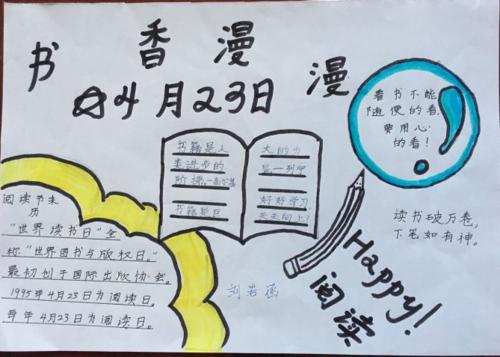 书香漫漫
4月23日
看书不能
随便的看,
要用心
的看!
书籍是人
类进步的
书籍是巨
大的力
好好学习,
天天向上!
读书破万卷,
下笔如有神。
阅读节来
历
"世界读书日"全
称"世界图书与版权日,"
最初创于国际出版协会。
1995年4月23日为阅读日。
每年4月23日为阅读日。
Happy!
阅读